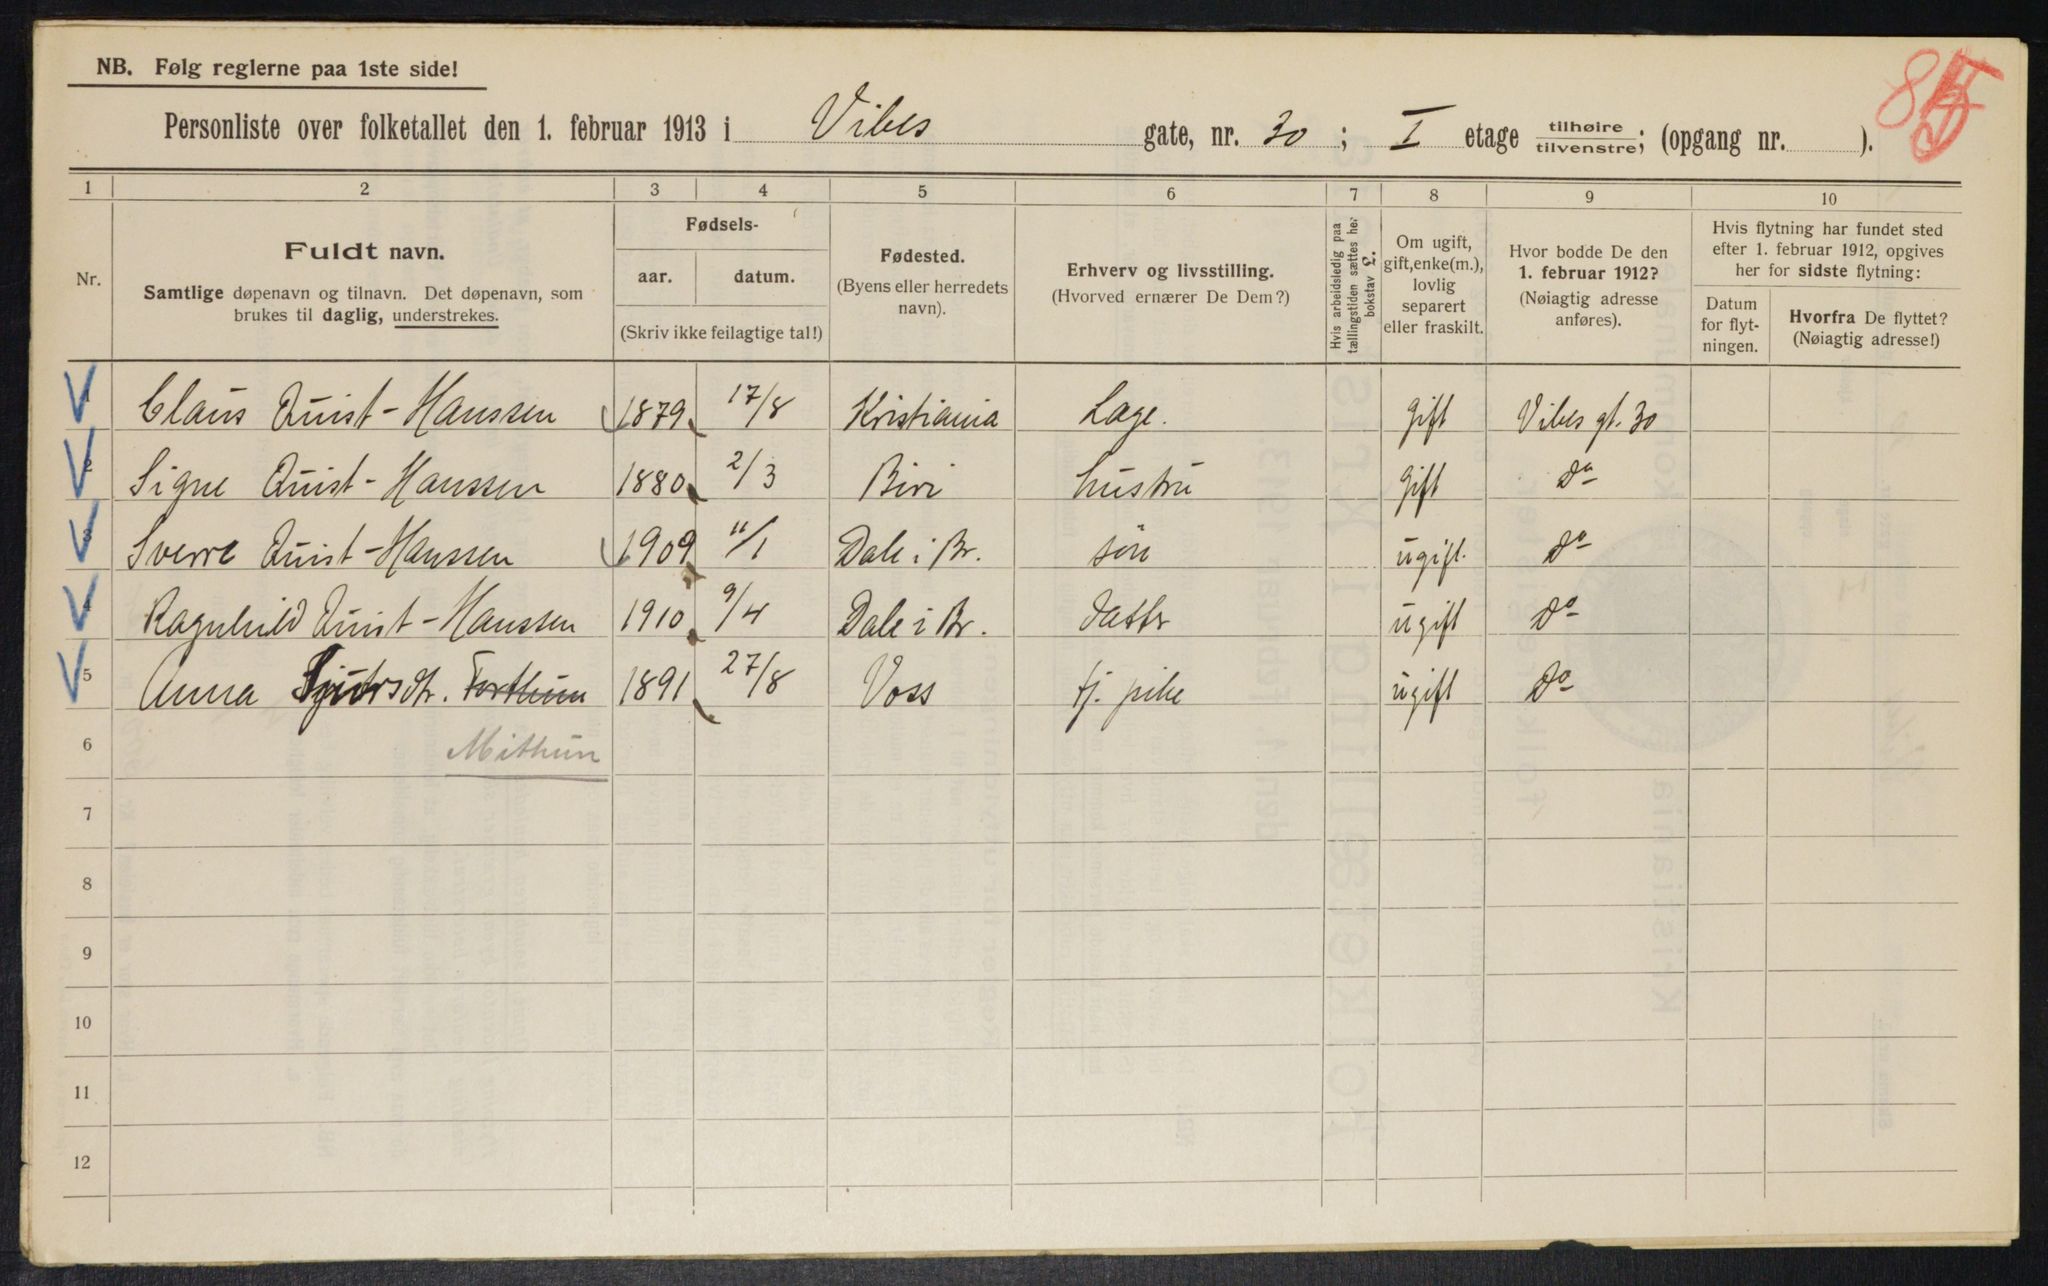 NB. Følg reglerne paa 1ste side!
Personliste over folketallet den 1. februar 1913 i Vibes gate, nr. 30; I etage tilhøire tilvenstre; (opgang nr. ).
1 2 3 4 5 6 7 8 9 10
Nr.
Fuldt navn.
Samtlige døpenavn og tilnavn. Det døpenavn, som
brukes til daglig, understrekes.
Fødsels-
aar. datum.
(Skriv ikke feilagtige tal!)
Fødested.
(Byens eller herredets
navn).
Erhverv og livsstilling.
(Hvorved ernærer De Dem?)
Hvis arbeidsledig paa
tællingstiden sættes her
bokstav L.
Om ugift,
gift, enke(m.),
lovlig
separert
eller fraskilt.
Hvor bodde De den
1. februar 1912?
(Nøiagtig adresse
anføres).
Hvis flytning har fundet sted
efter 1. februar 1912, opgives
her for sidste flytning:
Datum
for flyt-
ningen.
Hvorfra De flyttet?
(Nøiagtig adresse!)
1 Claus Quist-Hanssen 1879 17/8 Kristiania Læge. gift Vibes gt. 30
2 Signe Quist-Hanssen 1880 2/3 Biri hustru gift do
3 Sverre Quist-Hanssen 1909 11/1 Dale i Br. søn ugift. do
4 Ragnhild Quist-Hanssen 1910 9/4 Dale i Br. datter ugift do
5 Anna Sjursdtr. Forthun 1891 27/8 Voss tj. pike ugift do
6 Mithun
7
8
9
10
11
12